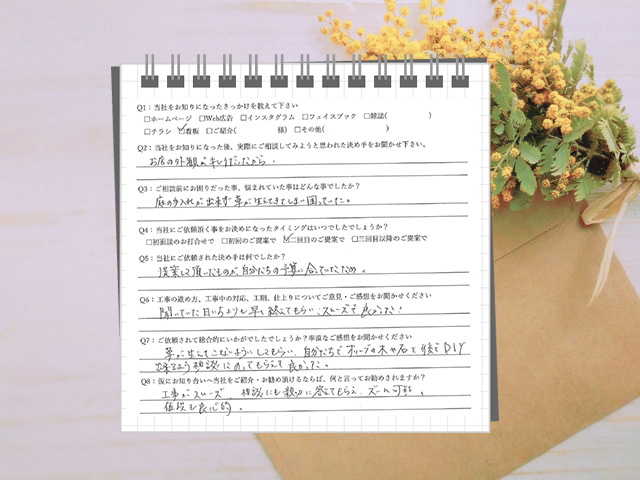 Q1：当社をお知りになったきっかけを教えて下さい
□ホームページ □Web広告 □インスタグラム □フェイスブック □雑誌( )
□チラシ ☑看板 □ご紹介( 様) □その他( )
Q2：当社をお知りになった後、実際にご相談してみようと思われた決め手をお聞かせ下さい。
お店の外観がキレイだったから。
Q3：ご相談前にお困りだった事、悩まれていた事はどんな事でしたか？
庭の手入れが出来ず草が生えてきてしまい困っていた。
Q4：当社にご依頼頂く事をお決めになったタイミングはいつでしたでしょうか？
□初面談のお打合せで □初回のご提案で ☑二回目のご提案で □三回目以降のご提案で
Q5：当社にご依頼された決め手は何でしたか？
提案して頂いたものが自分たちの予算に合っていたため。
Q6：工事の進め方、工事中の対応、工期、仕上りについてご意見・ご感想をお聞かせください
聞いていた日にちよりも早く終えてもらい、スムーズで良かった！
Q7：ご依頼されて総合的にいかがでしたでしょうか？率直なご感想をお聞かせください
草が生えてこないようにしてもらい、自分たちでオリーブの木や石を後でDIY
出来るよう相談にのってもらえて良かった。
Q8：仮にお知り合いへ当社をご紹介・お勧め頂けるならば、何と言ってお勧めされますか？
工事がスムーズ、相談にも親切に答えてもらえ、
値段も良心的。